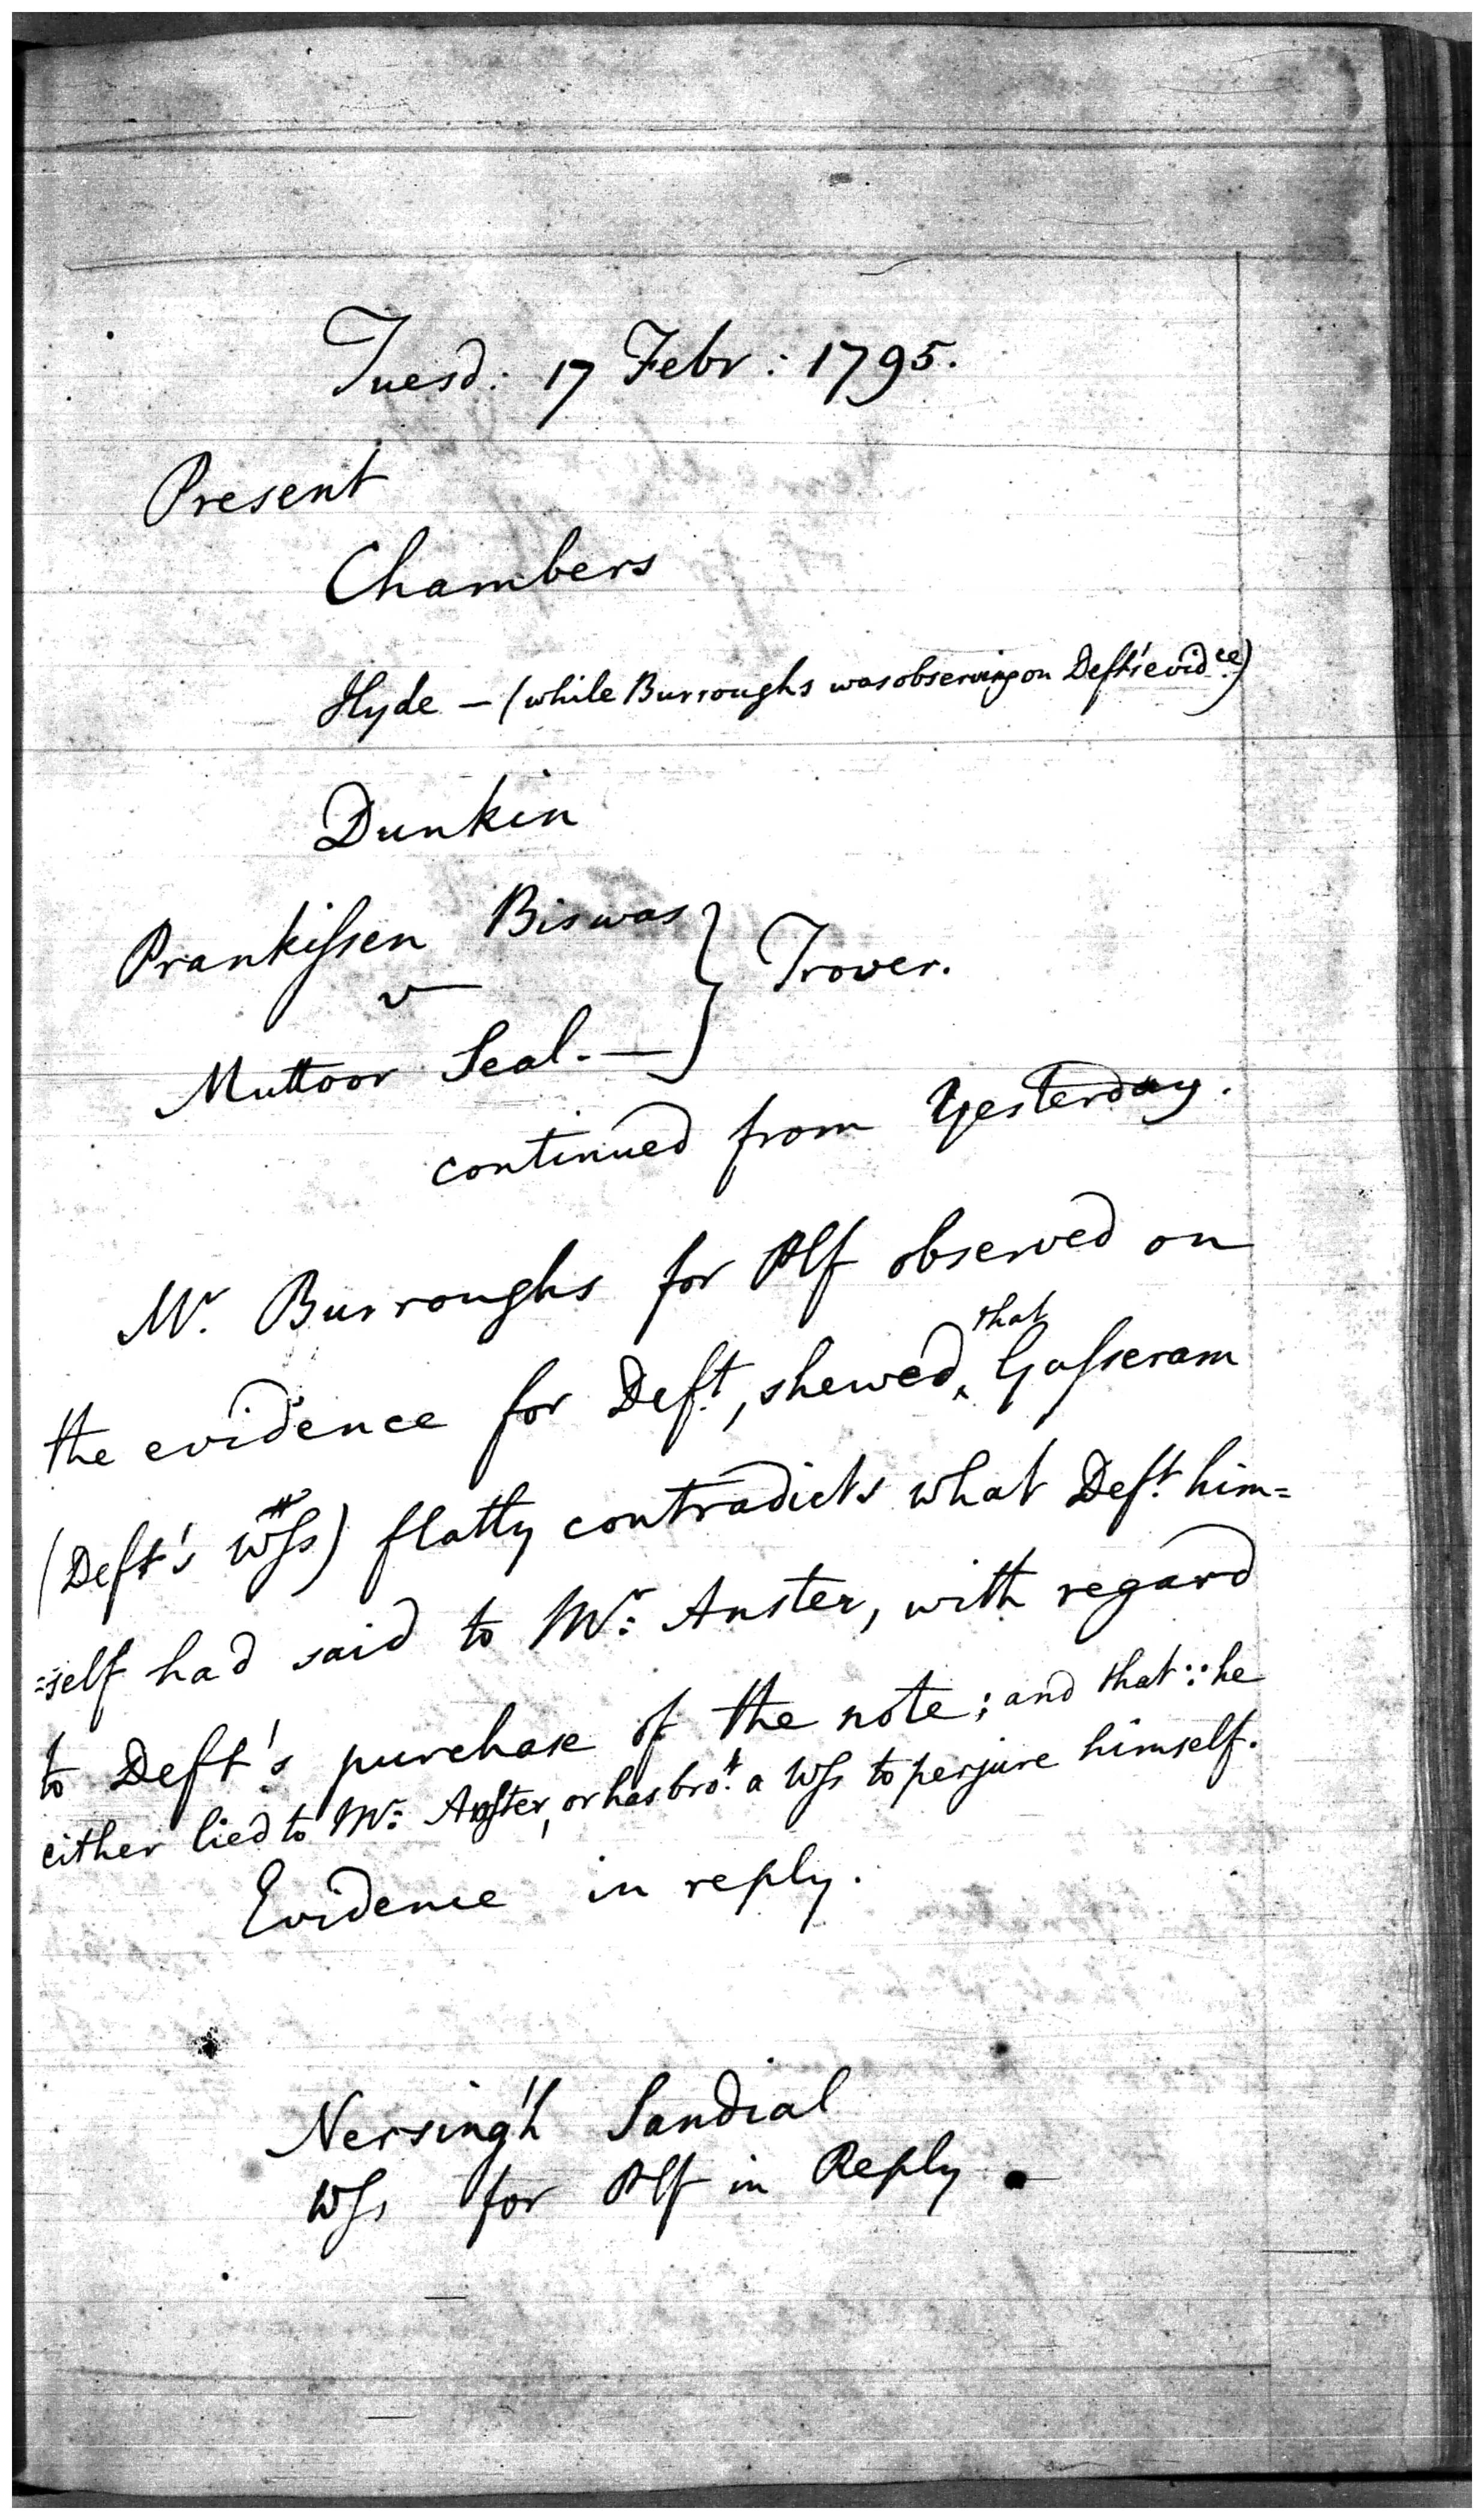 Tuesd: 17 Febr: 1795.
Present
Chambers
Hyde — (while Burroughs was observing on Deft's evid.ce)
Dunkin
Prankissen Biswas } Trover.
v
Muttoor Seal. —
continued from Yesterday.
Mr. Burroughs for Plf observed on
the evidence for Deft, shewed that Gosseram
(Deft's Wss) flatly contradicts what Deft him=
=self had said to Mr: Anster, with regard
to Deft's purchase of the note; and that ∵ he
either lied to Mr: Anster, or has brot. a Wss to perjure himself.
Evidence in reply.
Nersing'h Sandial
Wss for Plf in Reply.